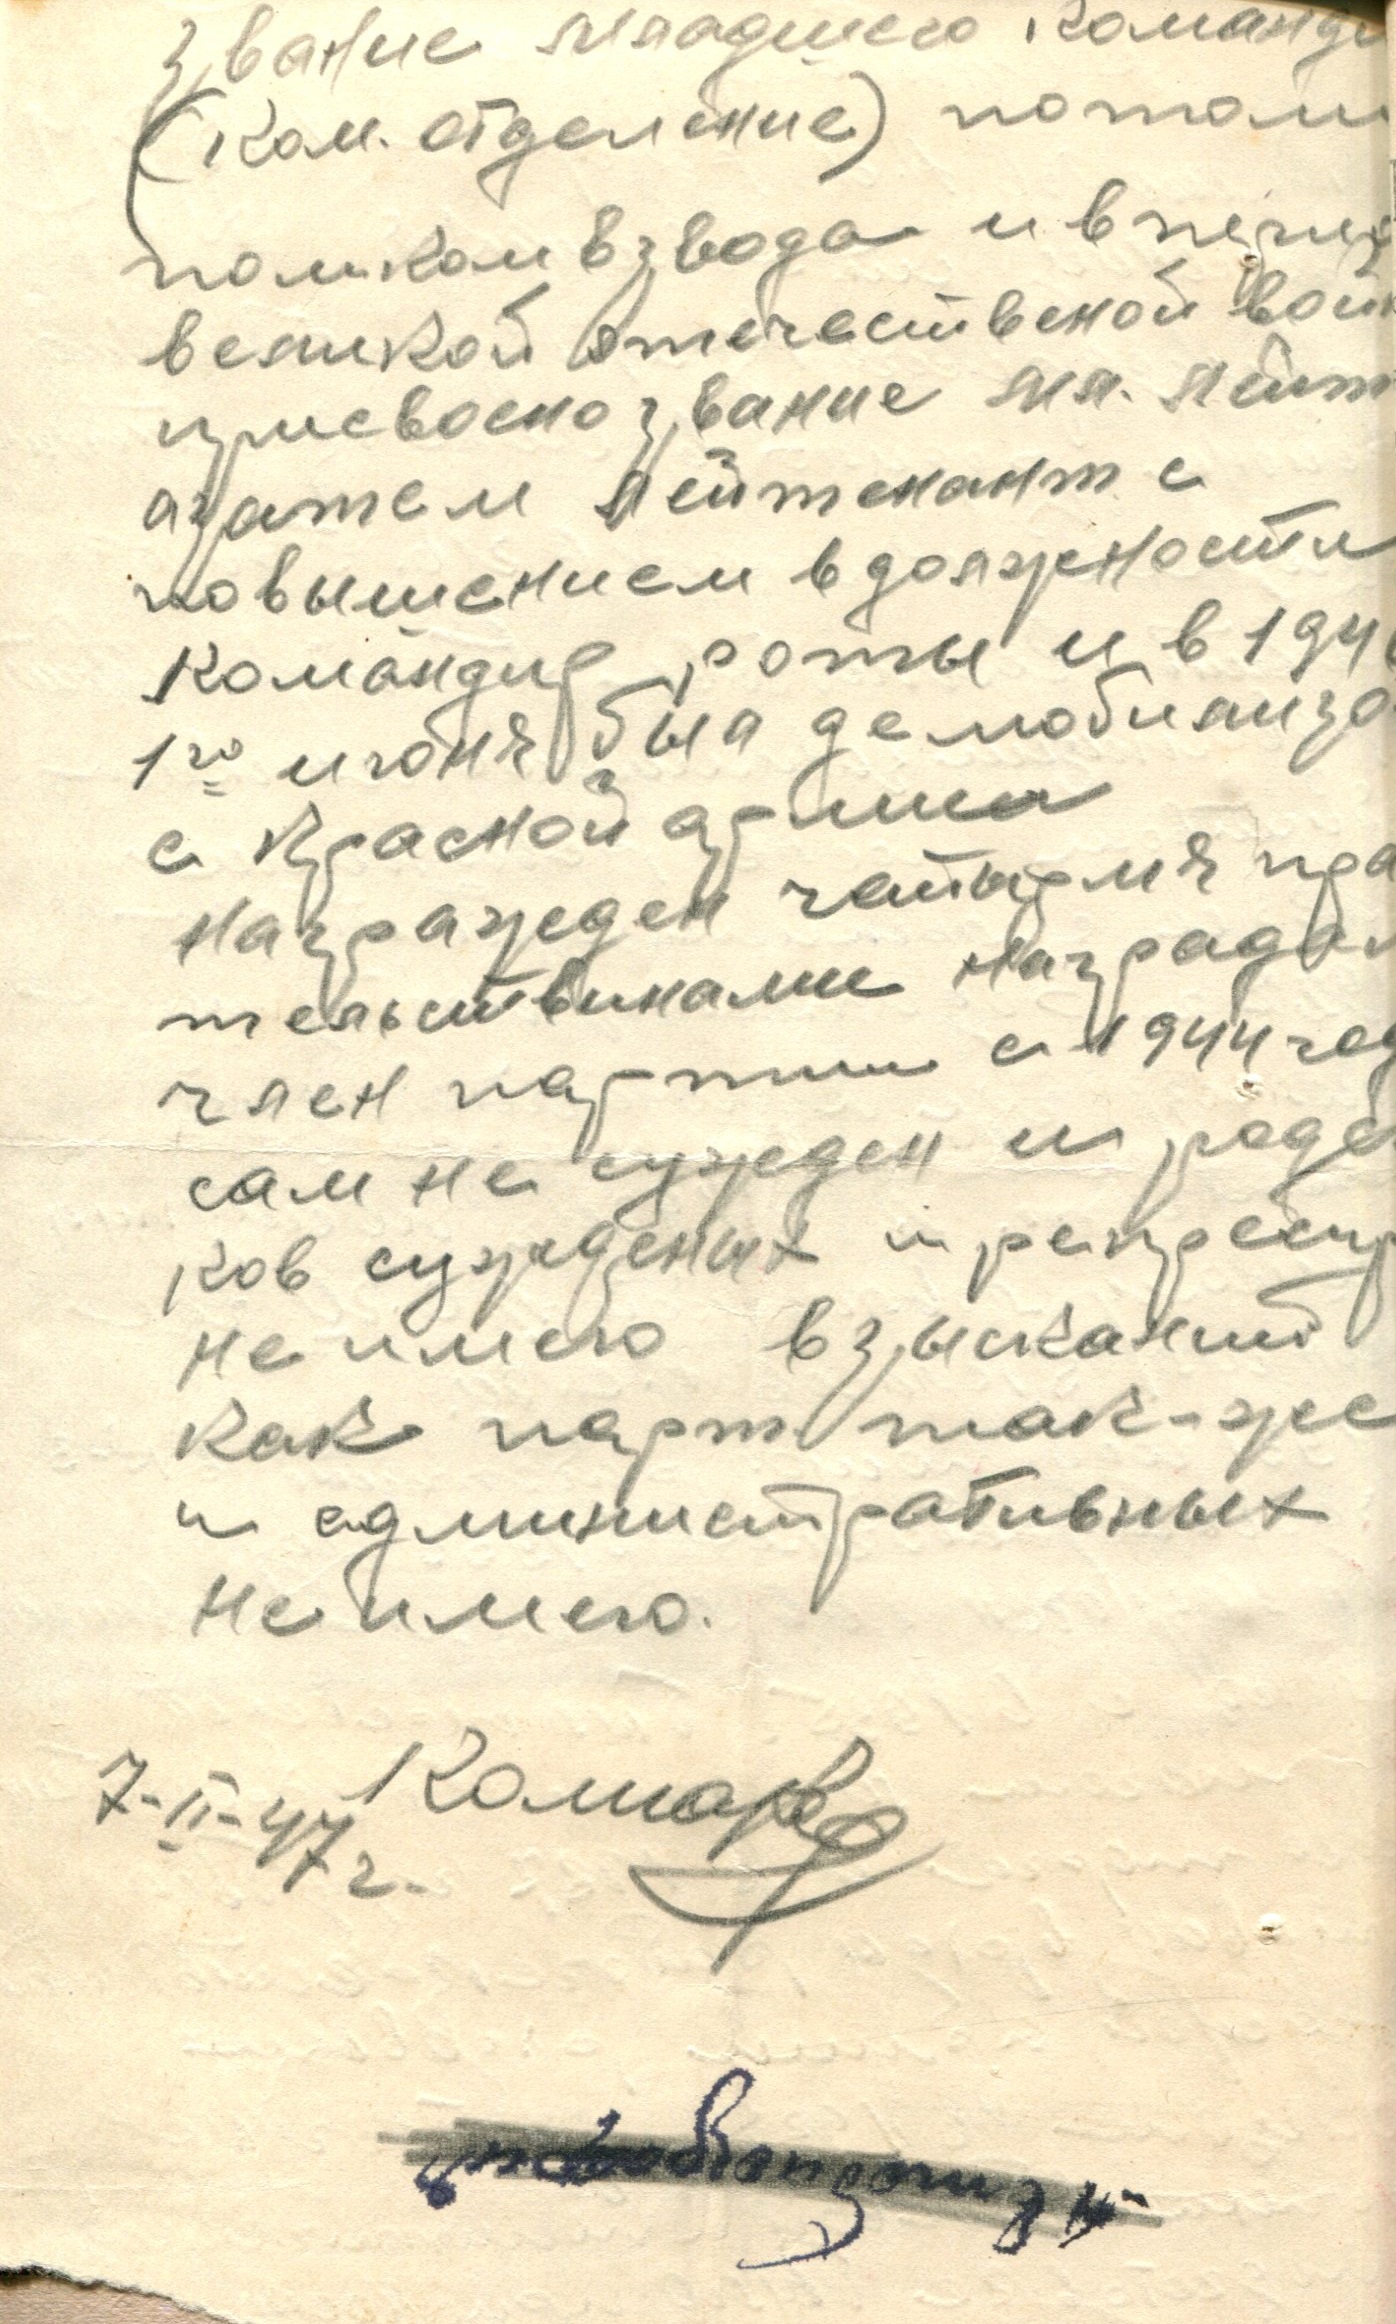 звание младшего команди
(ком. отделение) потом
помком взвода и в период
великой отечественой вой
присвоено звание мл. лейт
азатем лейтенант с
повышением в должности
командир роты и в 194
1го июня был демобилиза
с Красной армии
награжден чатырмя пра
тельствинами наградам
член партии с 1944 год
сам не сужден и родс
ков сужденых и репресир
не имею взысканий
как парт так-же
и административных
не имею.
7-II-47 г. Комаров